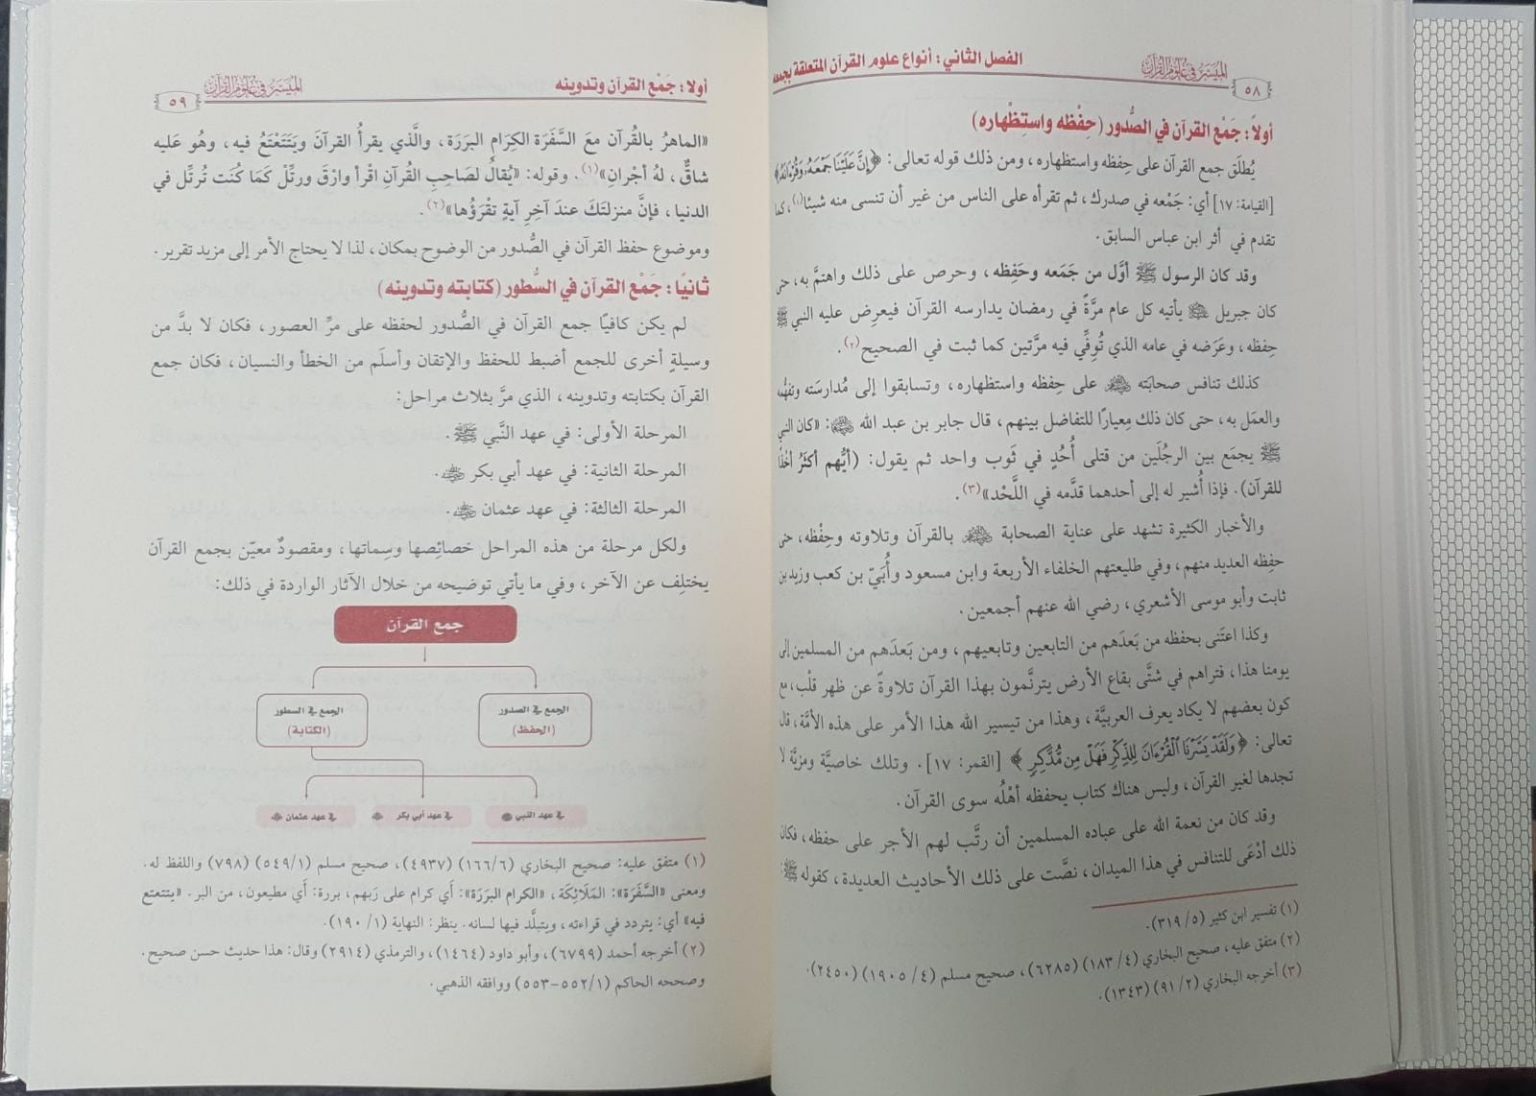 ٥٨
الميسر في علوم القرآن
الفصل الثاني: أنواع علوم القرآن المتعلقة بجمعه
أولاً: جَمْع القرآن في الصُّدور (حِفْظه واستِظْهاره)
يُطلَق جمع القرآن على حِفظه واستظهاره، ومن ذلك قوله تعالى: ﴿إِنَّ عَلَيْنَا جَمْعَهُ وَقُرْءَانَهُ﴾
[القيامة: ١٧] أي: جَمْعه في صدرك، ثم تقرأه على الناس من غير أن تنسى منه شيئا(١)، كما
تقدم في أثر ابن عباس السابق.
وقد كان الرسول ﷺ أوَّل من جَمَعه وحَفِظه، وحرص على ذلك واهتمَّ به، حتى
كان جبريل ﷺ يأتيه كل عام مرَّةً في رمضان يدارسه القرآن فيعرِض عليه النبي ﷺ
حِفظه، وعَرَضه في عامه الذي تُوفِّي فيه مرَّتين كما ثبت في الصحيح(٢).
كذلك تنافس صحابَته ﷺ على حِفظه واستظهاره، وتسابقوا إلى مُدارسَته وتفهُّمه
والعمَل به، حتى كان ذلك مِعيارًا للتفاضل بينهم، قال جابر بن عبد الله ﷺ: «كان النبي
ﷺ يجمَع بين الرجُلَين من قتلى أُحُدٍ في ثَوب واحد ثم يقول: (أيُّهم أكثَرُ أخْذًا
للقرآن). فإذا أُشير له إلى أحدهما قدَّمه في اللَّحْد»(٣).
والأخبار الكثيرة تشهد على عناية الصحابة ﷺ بالقرآن وتلاوته وحِفْظه، حتى
حفِظه العديد منهم، وفي طليعتهم الخلفاء الأربعة وابن مسعود وأُبَيّ بن كعب وزيد بن
ثابت وأبو موسى الأشعري، رضي الله عنهم أجمعين.
وكذا اعتَنى بحفظه من بَعدَهم من التابعين وتابعيهم، ومن بَعدَهم من المسلمين إلى
يومنا هذا، فتراهم في شتَّى بقاع الأرض يترنَّمون بهذا القرآن تلاوةً عن ظهر قلْب، مع
كون بعضهم لا يكاد يعرف العربيَّة، وهذا من تيسير الله هذا الأمر على هذه الأمَّة، قال
تعالى: ﴿وَلَقَدْ يَسَّرْنَا ٱلْقُرْءَانَ لِلذِّكْرِ فَهَلْ مِن مُّدَّكِرٍ﴾ [القمر: ١٧]. وتلك خاصيَّة ومزيَّة لا
تجدها لغير القرآن، وليس هناك كتاب يحفظه أهْلُه سوى القرآن.
وقد كان من نعمة الله على عباده المسلمين أن رتَّب لهم الأجر على حفظه، فكان
ذلك أدْعَى للتنافس في هذا الميدان، نصَّت على ذلك الأحاديث العديدة، كقوله ﷺ:
(١) تفسير ابن كثير (٥/ ٣١٩).
(٢) متفق عليه، صحيح البخاري (٤/ ١٨٣) (٦٢٨٥)، صحيح مسلم (٤/ ١٩٠٥) (٢٤٥٠).
(٣) أخرجه البخاري (٢/ ٩١) (١٣٤٣).
أولا: جَمْع القرآن وتدوينه
الميسر في علوم القرآن
٥٩
«الماهرُ بالقُرآن معَ السَّفَرَة الكِرَام البَرَرَة، والَّذي يقرأُ القرآنَ ويَتَتَعْتَعُ فيه، وهُو عَليه
شاقٌّ، لهُ أجْرانِ»(١). وقوله: «يُقالُ لصَاحِبِ القُرآنِ اقْرأ وارْقَ ورتِّلْ كَمَا كُنَت تُرتِّل في
الدنيا، فإنَّ منزلتَكَ عندَ آخرِ آيةٍ تقْرَؤُها»(٢).
وموضوع حفظ القرآن في الصُّدور من الوضوح بمكان، لذا لا يحتاج الأمر إلى مزيد تقرير.
ثانيًا: جَمْع القرآن في السُّطور (كتابته وتدوينه)
لم يكن كافيًا جمع القرآن في الصُّدور لحفظه على مرِّ العصور، فكان لا بدَّ من
وسيلةٍ أخرى للجمع أضبط للحفظ والإتقان وأسلَم من الخطأ والنسيان، فكان جمع
القرآن بكتابته وتدوينه، الذي مرَّ بثلاث مراحل:
المرحلة الأولى: في عهد النَّبي ﷺ.
المرحلة الثانية: في عهد أبي بكر ﷺ.
المرحلة الثالثة: في عهد عثمان ﷺ.
ولكل مرحلة من هذه المراحل خصائِصها وسِماتها، ومقصودٌ معيّن بجمع القرآن
يختلِف عن الآخر، وفي ما يأتي توضيحه من خلال الآثار الواردة في ذلك:
جمع القرآن
الجمع في الصدور
(الحفظ)
الجمع في السطور
(الكتابة)
في عهد النبي ﷺ
في عهد أبي بكر
في عهد عثمان
(١) متفق عليه: صحيح البخاري (٦/ ١٦٦) (٤٩٣٧)، صحيح مسلم (١/ ٥٤٩) (٧٩٨) واللفظ له.
ومعنى «السَّفَرَة»: المَلَائِكَة، «الكرام البَرَرَة»: أي كرام على رَبهم، بررة: أي مطيعون، من البر. «يتتعتع
فيه» أي: يتردد في قراءته، ويتبلَّد فيها لسانه. ينظر: النهاية (١/ ١٩٠).
(٢) أخرجه أحمد (٦٧٩٩)، وأبو داود (١٤٦٤)، والترمذي (٢٩١٤) وقال: هذا حديث حسن صحيح.
وصححه الحاكم (١/ ٥٥٢-٥٥٣) ووافقه الذهبي.